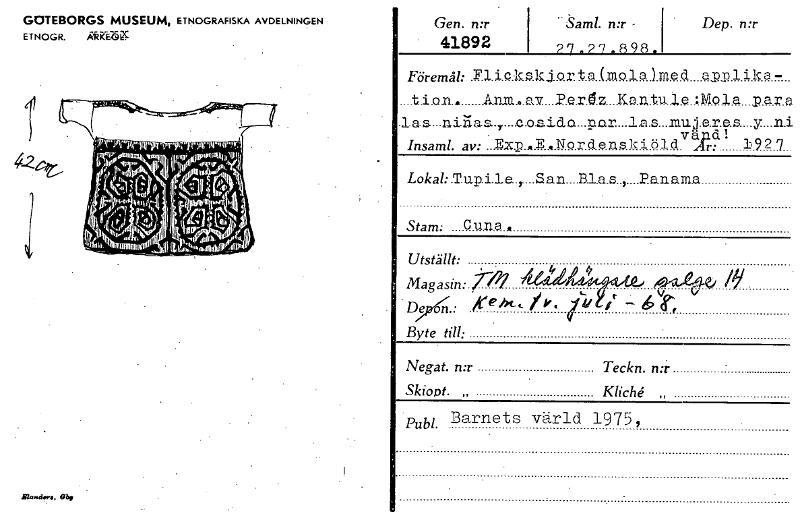 GÖTEBORGS MUSEUM, ETNOGRAFISKA AVDELNINGEN
ETNOGR. ARKEOL.
42 cm
Elanders, Gbg
Gen. n:r Saml. n:r Dep. n:r
41892 27.27.898.
Föremål: Flickskjorta(mola)med applika-
tion. Anm.av Peréz Kantule:Mola para
las niñas, cosido por las mujeres y ni
vänd!
Insaml. av: Exp.E.Nordenskiöld År: 1927
Lokal: Tupile, San Blas, Panama
Stam: Cuna.
Utställt:
Magasin: TM klädhängare galge 14
Depon.: Kem. tv. juli - 68.
Byte till:
Negat. n:r Teckn. n:r
Skiopt. „ Kliché „
Publ. Barnets värld 1975,